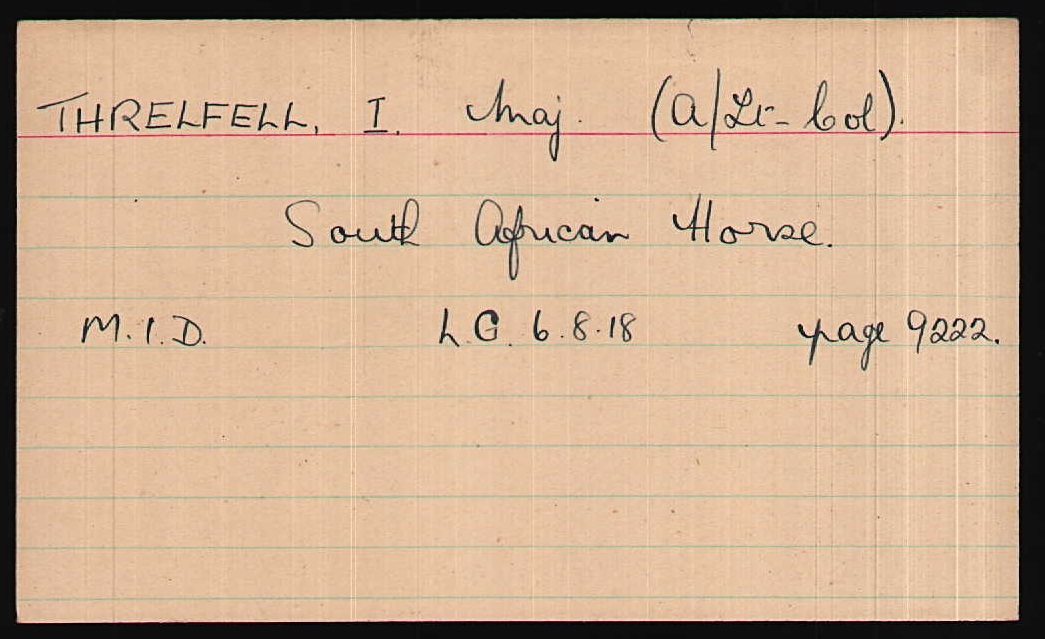 THRELFELL, I. Maj. (A/Lt-Col).
South African Horse.
M.I.D. L.G. 6.8.18 page 9222.